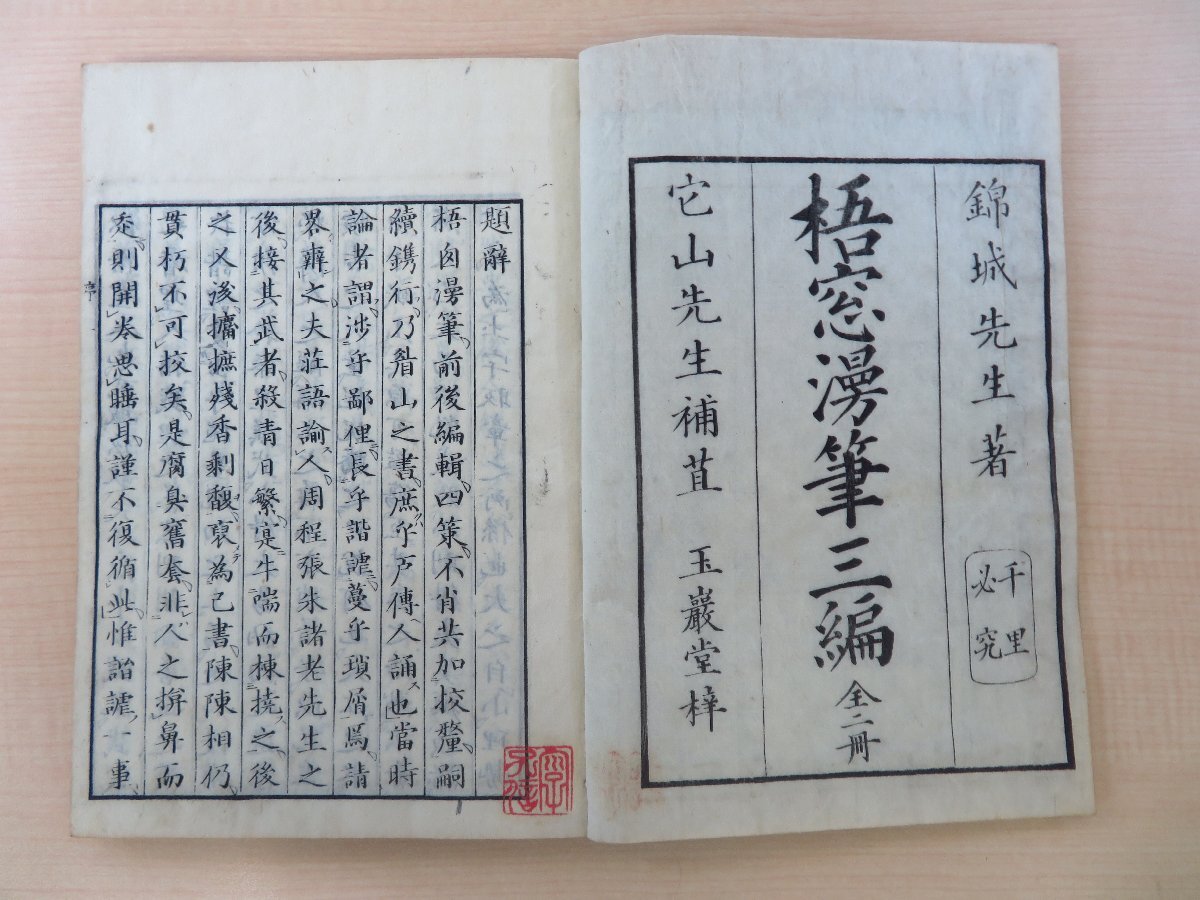 錦城先生著
千里
必究
梧窓漫筆三編
全二冊
它山先生補苴 玉巖堂梓
題辭
梧囱漫筆前後編輯四策不肖共加挍釐嗣
續鐫行乃眉山之書庶乎戸傳人誦也當時
論者謂涉乎鄙俚長乎諧謔蔓乎瑣屑焉請
畧辨之夫荘語諭人周程張朱諸老先生之
後接其武者殺青日繁寔牛喘而棟撓之後
之又後攟摭殘香剩馥裒為己書陳陳相仍
貫朽不可挍矣是腐臭舊套非人之揜鼻而
走則開巻思睡耳謹不復循此惟諧謔一事
序